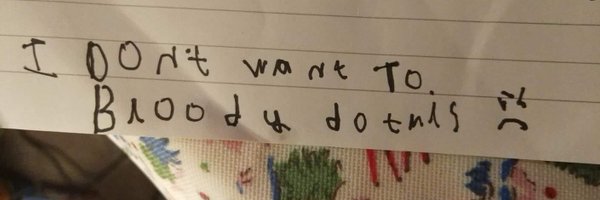 I DON't want TO.
Bloody do this :(